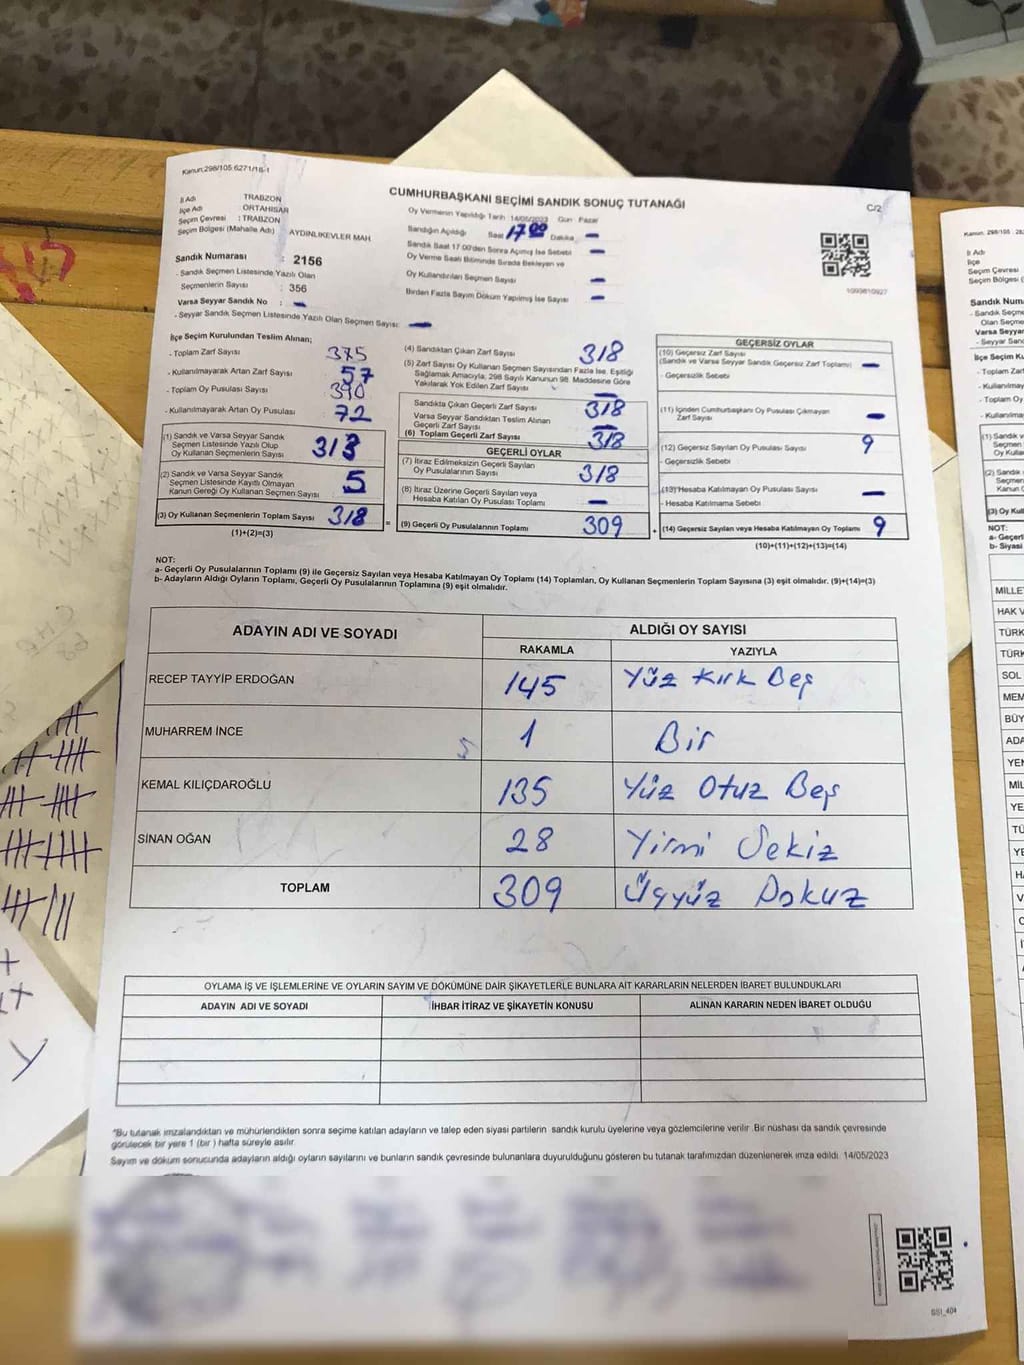 Kanun:298/105 6271/18-1
CUMHURBAŞKANI SEÇİMİ SANDIK SONUÇ TUTANAĞI
C/2
İl Adı TRABZON
İlçe Adı ORTAHİSAR
Seçim Çevresi : TRABZON
Seçim Bölgesi (Mahalle Adı) AYDINLIKEVLER MAH
Sandık Numarası : 2156
- Sandık Seçmen Listesinde Yazılı Olan
Seçmenlerin Sayısı : 356
Varsa Seyyar Sandık No : -
- Seyyar Sandık Seçmen Listesinde Yazılı Olan Seçmen Sayısı: -
Oy Vermenin Yapıldığı Tarih 14/05/2023 Gün Pazar
Sandığın Açıldığı Saat 17 00 Dakika -
Sandık Saat 17.00'den Sonra Açılmış İse Sebebi -
Oy Verme Saati Bitiminde Sırada Bekleyen ve
Oy Kullandırılan Seçmen Sayısı -
Birden Fazla Sayım Döküm Yapılmış İse Sayısı -
1099810927
İlçe Seçim Kurulundan Teslim Alınan;
- Toplam Zarf Sayısı 375
- Kullanılmayarak Artan Zarf Sayısı 57
- Toplam Oy Pusulası Sayısı 390
- Kullanılmayarak Artan Oy Pusulası 72
(1) Sandık ve Varsa Seyyar Sandık
Seçmen Listesinde Yazılı Olup
Oy Kullanan Seçmenlerin Sayısı 313
(2) Sandık ve Varsa Seyyar Sandık
Seçmen Listesinde Kayıtlı Olmayan
Kanun Gereği Oy Kullanan Seçmen Sayısı 5
(3) Oy Kullanan Seçmenlerin Toplam Sayısı 318 =
(1)+(2)=(3)
(4) Sandıktan Çıkan Zarf Sayısı 318
(5) Zarf Sayısı Oy Kullanan Seçmen Sayısından Fazla İse, Eşitliği
Sağlamak Amacıyla; 298 Sayılı Kanunun 98. Maddesine Göre
Yakılarak Yok Edilen Zarf Sayısı -
Sandıkta Çıkan Geçerli Zarf Sayısı 318
Varsa Seyyar Sandıktan Teslim Alınan
Geçerli Zarf Sayısı -
(6) Toplam Geçerli Zarf Sayısı 318
GEÇERLİ OYLAR
(7) İtiraz Edilmeksizin Geçerli Sayılan
Oy Pusulalarının Sayısı 318
(8) İtiraz Üzerine Geçerli Sayılan veya
Hesaba Katılan Oy Pusulası Toplamı -
(9) Geçerli Oy Pusulalarının Toplamı 309 +
GEÇERSİZ OYLAR
(10) Geçersiz Zarf Sayısı
(Sandık ve Varsa Seyyar Sandık Geçersiz Zarf Toplamı) -
- Geçersizlik Sebebi
(11) İçinden Cumhurbaşkanı Oy Pusulası Çıkmayan
Zarf Sayısı -
(12) Geçersiz Sayılan Oy Pusulası Sayısı 9
- Geçersizlik Sebebi
(13) Hesaba Katılmayan Oy Pusulası Sayısı -
- Hesaba Katılmama Sebebi
(14) Geçersiz Sayılan veya Hesaba Katılmayan Oy Toplamı 9
(10)+(11)+(12)+(13)=(14)
NOT:
a- Geçerli Oy Pusulalarının Toplamı (9) ile Geçersiz Sayılan veya Hesaba Katılmayan Oy Toplamı (14) Toplamları, Oy Kullanan Seçmenlerin Toplam Sayısına (3) eşit olmalıdır. (9)+(14)=(3)
b- Adayların Aldığı Oyların Toplamı, Geçerli Oy Pusulalarının Toplamına (9) eşit olmalıdır.
ADAYIN ADI VE SOYADI
ALDIĞI OY SAYISI
RAKAMLA YAZIYLA
RECEP TAYYİP ERDOĞAN 145 Yüz Kırk Beş
MUHARREM İNCE 1 Bir
KEMAL KILIÇDAROĞLU 135 Yüz Otuz Beş
SİNAN OĞAN 28 Yirmi Sekiz
TOPLAM 309 Üçyüz Dokuz
OYLAMA İŞ VE İŞLEMLERİNE VE OYLARIN SAYIM VE DÖKÜMÜNE DAİR ŞİKAYETLERLE BUNLARA AİT KARARLARIN NELERDEN İBARET BULUNDUKLARI
ADAYIN ADI VE SOYADI İHBAR İTİRAZ VE ŞİKAYETİN KONUSU ALINAN KARARIN NEDEN İBARET OLDUĞU
*Bu tutanak imzalandıktan ve mühürlendikten sonra seçime katılan adayların ve talep eden siyasi partilerin sandık kurulu üyelerine veya gözlemcilerine verilir .Bir nüshası da sandık çevresinde
görülecek bir yere 1 (bir ) hafta süreyle asılır.
Sayım ve döküm sonucunda adayların aldığı oyların sayılarını ve bunların sandık çevresinde bulunanlara duyurulduğunu gösteren bu tutanak tarafımızdan düzenlenerek imza edildi. 14/05/2023
SSI_404
İl Adı
İlçe
Seçim Çevresi
Seçim Bölgesi
Sandık Num
NOT:
MİLLE
HAK V
TÜRK
TÜRK
SOL
MEM
BÜY
ADA
YEN
MİL
YE
TÜ
YE